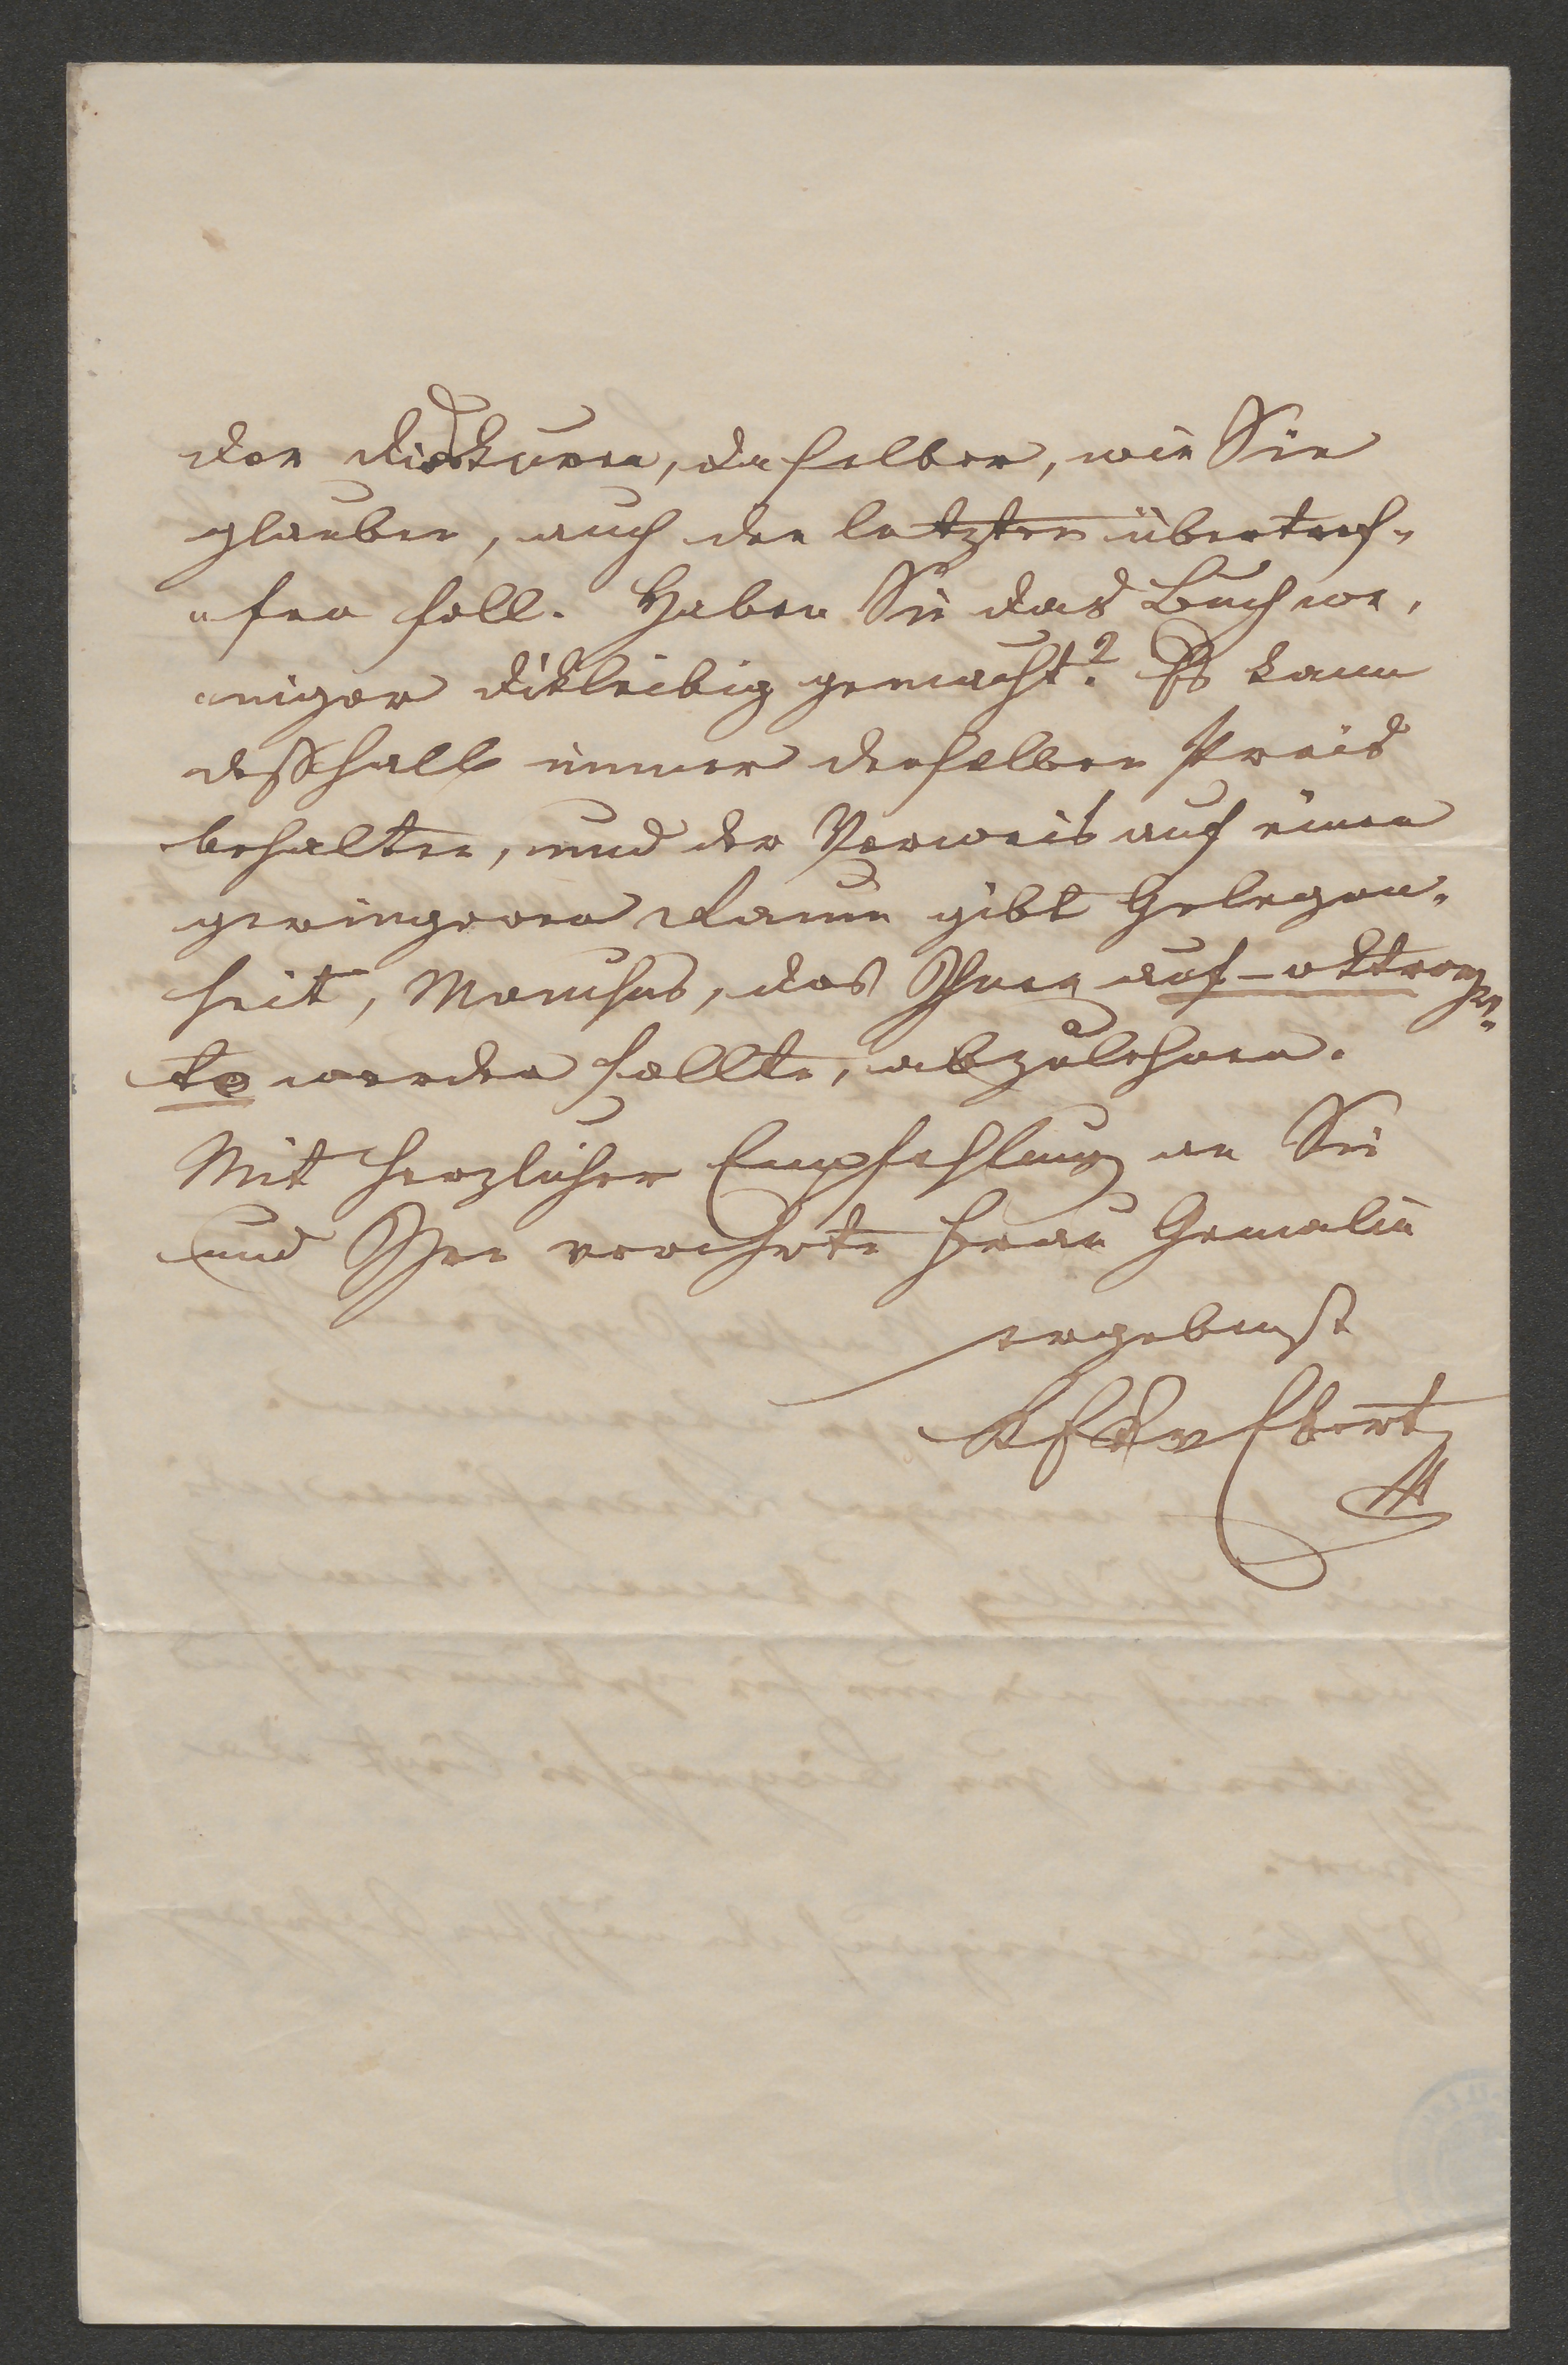 der Dioskuren, da selber, wie Sie
glauben, auch den letzten übertref-
-fen soll. Haben Sie das Buch we-
-niger dikleibig gemacht? Es kann
deßhalb immer denselben Preis
behalten, und der Verweis auf einen
geringeren Raum gibt Gelegen-
heit, Manches, das Ihnen auf-oktroyr-
te werden sollte, abzulehnen.
Mit herzlicher Empfehlung an Sie
und Ihre verehrte Frau Gemalin
ergebenst
KERvEbert